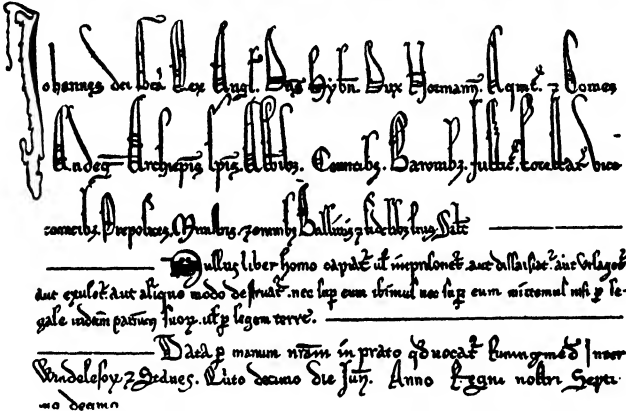 Johannes dei gra Rex Angl. Dns Hybn. Dux Normann. Aqnit. 7 Comes
Andeg. Archiepis. Epis. Abbibz. Comitibz. Baronibz. Justic. Forestar. vice-
comitibz. Prepositis. Ministris. 7 omnibz Ballivis 7 fidelibz suis. Salt
Nullus liber homo capiat. ul imprisonet. aut dissaisiat. aut utlaget.
aut exulet. aut aliquo modo destruat. nec sup eum ibimus nec sup eum mittemus nisi p le-
gale judicm parium suor. ul p legem terre.
Data p manum nram in prato qd vocat Runingmed Inter
Windelesor 7 Stanes. Quto decimo die Jun. Anno Regni nostri Septi-
mo decimo